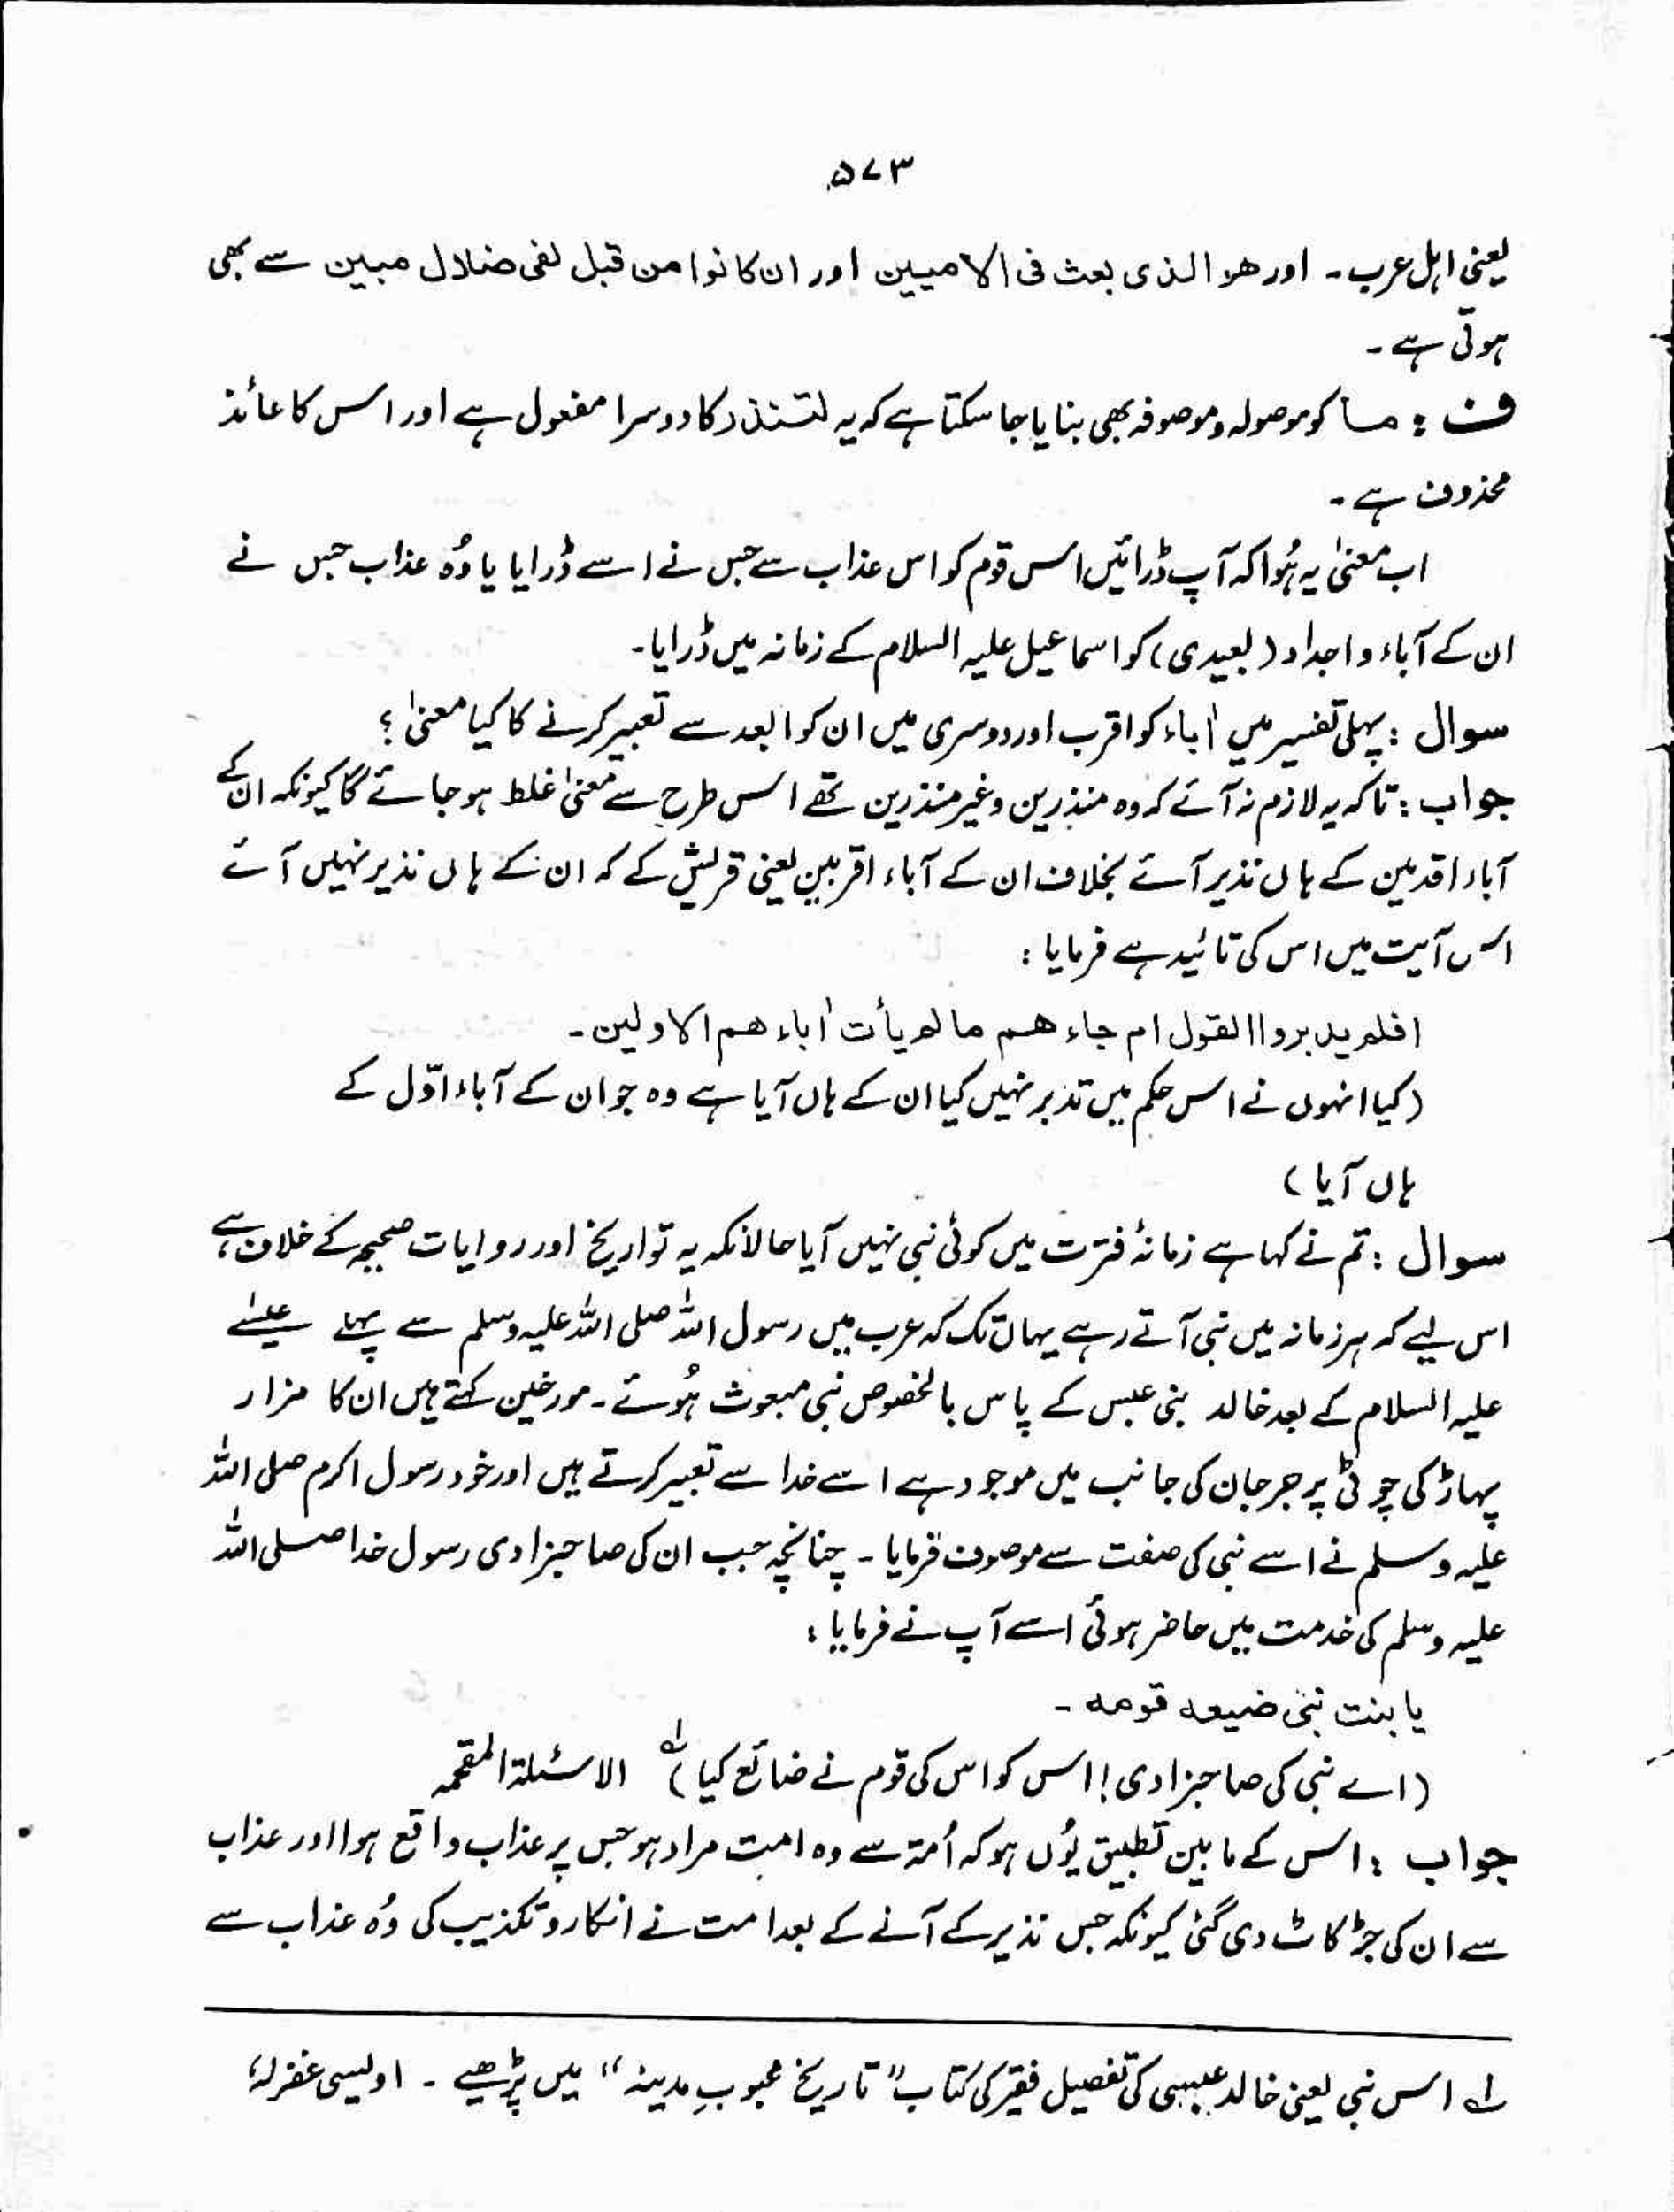 ۵۷۳
یعنی اہل عرب۔ اور ھو الذی بعث فی الامیین اور ان کانوا من قبل لفی ضلال مبین سے بھی
ہوتی ہے۔
ف : ما کو موصولہ و موصوفہ بھی بنایا جا سکتا ہے کہ یہ لتنذر کا دوسرا مفعول ہے اور اس کا عائذ
محذوف ہے۔
اب معنیٰ یہ ہُوا کہ آپ ڈرائیں اس قوم کو اس عذاب سے جس نے اسے ڈرایا یا وُہ عذاب جس نے
ان کے آباء و اجداد (بعیدی) کو اسماعیل علیہ السلام کے زمانہ میں ڈرایا۔
سوال : پہلی تفسیر میں اٰباء کو اقرب اور دوسری میں ان کو ابعد سے تعبیر کرنے کا کیا معنیٰ ؟
جواب : تاکہ یہ لازم نہ آئے کہ وہ منذرین و غیر منذرین تھے اس طرح سے معنیٰ غلط ہو جائے گا کیونکہ ان کے
آباء اقدمین کے ہاں نذیر آئے بخلاف ان کے آباء اقربین یعنی قریش کے کہ ان کے ہاں نذیر نہیں آئے
اس آیت میں اس کی تائید ہے فرمایا :
افلم یدبروا القول ام جاءھم مالم یأت اٰباءھم الاولین۔
(کیا انہوں نے اس حکم میں تدبر نہیں کیا ان کے ہاں آیا ہے وہ جو ان کے آباء اوّل کے
ہاں آیا)
سوال : تم نے کہا ہے زمانۂ فترت میں کوئی نبی نہیں آیا حالانکہ یہ تواریخ اور روایات صحیحہ کے خلاف ہے،
اس لیے کہ ہر زمانہ میں نبی آتے رہے یہاں تک کہ عرب میں رسول اللہ صلی اللہ علیہ وسلم سے پہلے عیسےٰ
علیہ السلام کے بعد خالد بنی عبس کے پاس بالخصوص نبی مبعوث ہُوئے۔ مورخین کہتے ہیں ان کا مزار
پہاڑ کی چوٹی پر جرجان کی جانب میں موجود ہے اسے خدا سے تعبیر کرتے ہیں اور خود رسول اکرم صلی اللہ
علیہ وسلم نے اسے نبی کی صفت سے موصوف فرمایا۔ چنانچہ جب ان کی صاحبزادی رسول خدا صلی اللہ
علیہ وسلم کی خدمت میں حاضر ہوئی اسے آپ نے فرمایا :
یا بنت نبی ضیعہ قومہ۔
(اے نبی کی صاحبزادی! اس کو اس کی قوم نے ضائع کیا) لہ الاسئلۃ المقحمہ
جواب : اس کے مابین تطبیق یُوں ہو کہ اُمۃ سے وہ امت مراد ہو جس پر عذاب واقع ہوا اور عذاب
سے ان کی جڑ کاٹ دی گئی کیونکہ جس نذیر کے آنے کے بعد امت نے انکار و تکذیب کی وُہ عذاب سے
لہ اس نبی یعنی خالد عبسی کی تفصیل فقیر کی کتاب "تاریخ محبوبِ مدینہ" میں پڑھیے۔ اویسی غفرلہٗ